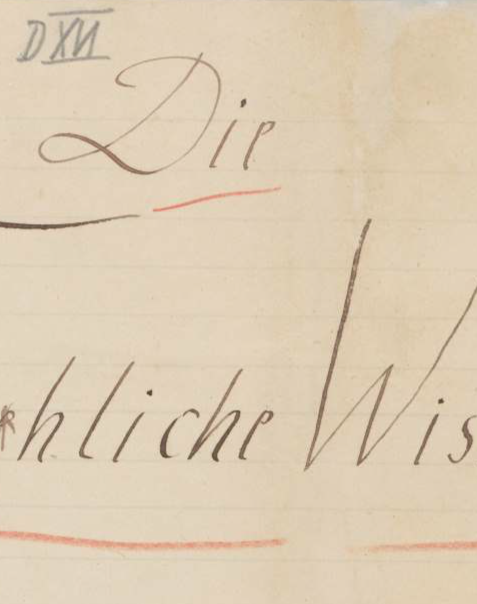 D XII
Die
hliche Wis